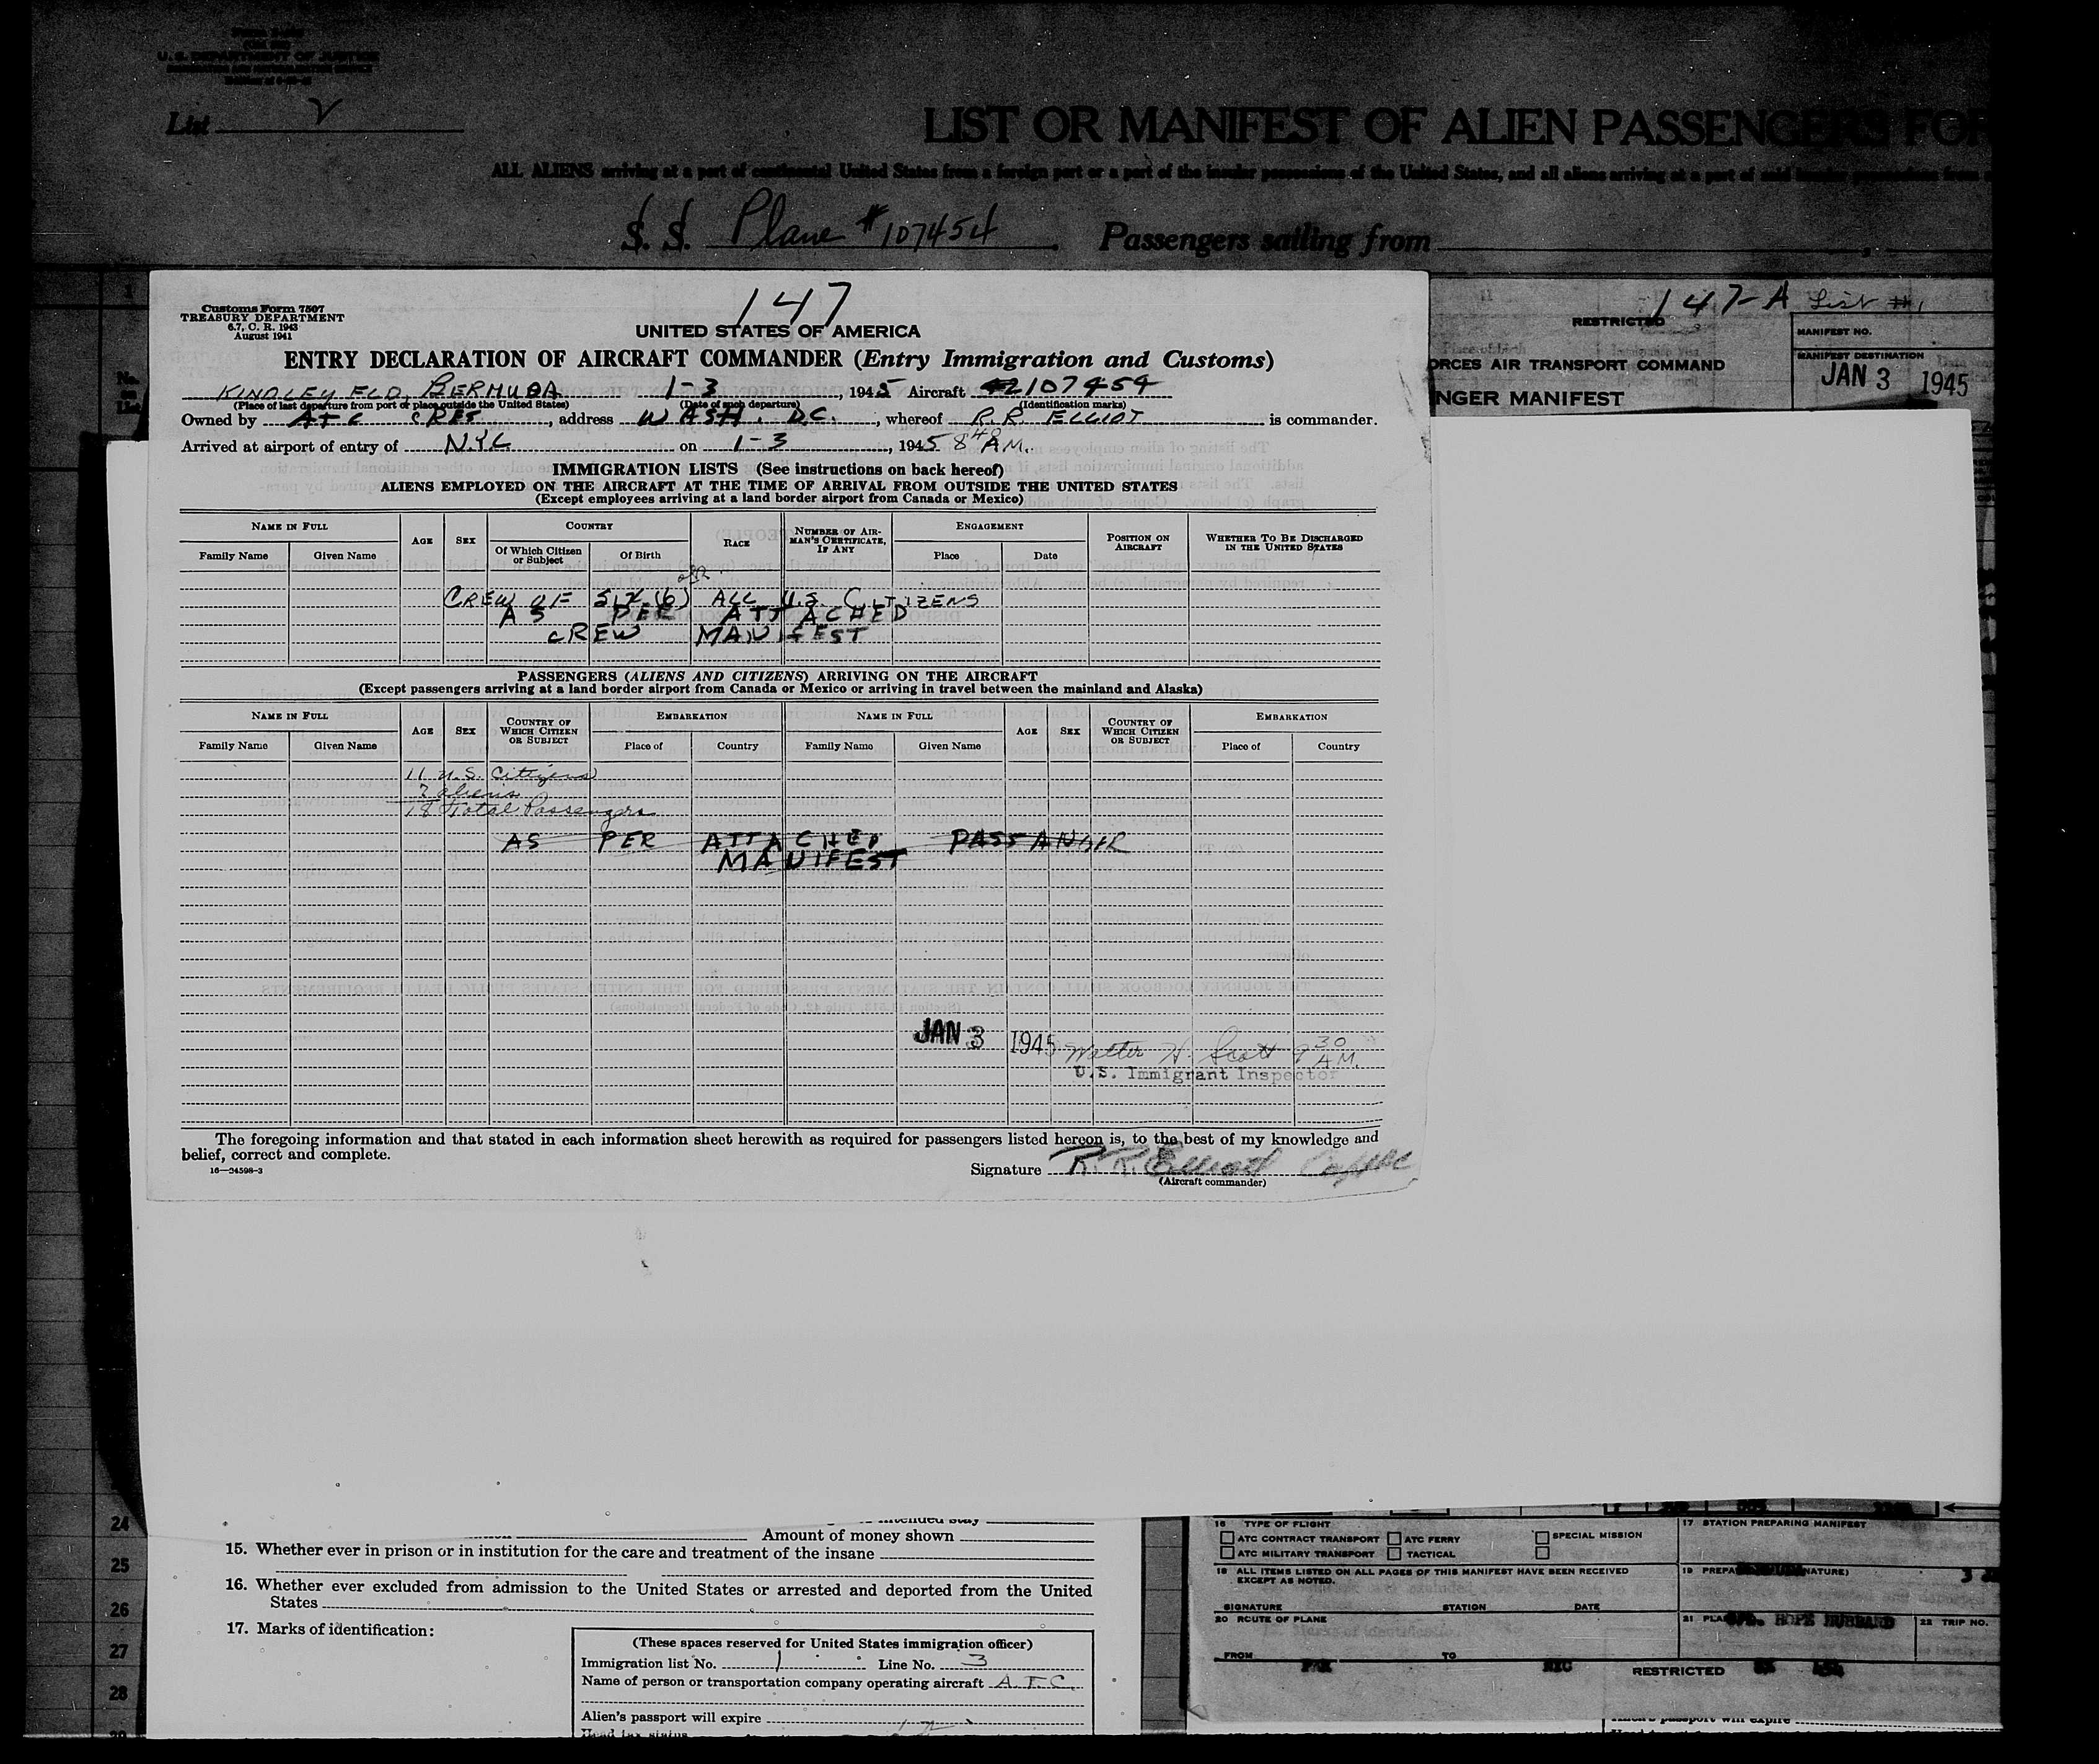 U. S. DEPARTMENT OF JUSTICE
List V
LIST OR MANIFEST OF ALIEN PASSENGERS FOR
ALL ALIENS arriving at a port of continental United States from a foreign port or a port of the insular possessions of the United States, and all aliens arriving at a port of said insular possessions from a
S. S. Plane #107454. Passengers sailing from
1
147
Customs Form 7507
TREASURY DEPARTMENT
6.7, C. R. 1943
August 1941
UNITED STATES OF AMERICA
ENTRY DECLARATION OF AIRCRAFT COMMANDER (Entry Immigration and Customs)
KINDLEY FLD, BERMUDA 1-3, 1945 Aircraft 42107454
(Place of last departure from port or place outside the United States) (Date of such departure) (Identification marks)
Owned by ATC CRES, address WASH. D.C., whereof R.R. ELLIOT is commander.
Arrived at airport of entry of N.Y.C. on 1-3, 1945 8 40 A.M.
IMMIGRATION LISTS (See instructions on back hereof)
ALIENS EMPLOYED ON THE AIRCRAFT AT THE TIME OF ARRIVAL FROM OUTSIDE THE UNITED STATES
(Except employees arriving at a land border airport from Canada or Mexico)
NAME IN FULL AGE SEX COUNTRY RACE NUMBER OF AIRMAN'S CERTIFICATE, IF ANY ENGAGEMENT POSITION ON AIRCRAFT WHETHER TO BE DISCHARGED IN THE UNITED STATES
Family Name Given Name Of Which Citizen or Subject Of Birth Place Date
CREW OF SIX (6) ALL U.S. CITIZENS
AS PER ATTACHED
CREW MANIFEST
PASSENGERS (ALIENS AND CITIZENS) ARRIVING ON THE AIRCRAFT
(Except passengers arriving at a land border airport from Canada or Mexico or arriving in travel between the mainland and Alaska)
NAME IN FULL AGE SEX COUNTRY OF WHICH CITIZEN OR SUBJECT EMBARKATION NAME IN FULL AGE SEX COUNTRY OF WHICH CITIZEN OR SUBJECT EMBARKATION
Family Name Given Name Place of Country Family Name Given Name Place of Country
11 U.S. Citizens
7 aliens
18 Total Passengers
AS PER ATTACHED PASSANGER
MANIFEST
JAN 3 1945 Walter H. Scott 9 30 A.M.
U.S. Immigrant Inspector
The foregoing information and that stated in each information sheet herewith as required for passengers listed hereon is, to the best of my knowledge and
belief, correct and complete.
16—24598-3
Signature R. R. Elliot
(Aircraft commander)
147-A List #1
RESTRICTED
MANIFEST NO.
ORCES AIR TRANSPORT COMMAND
MANIFEST DESTINATION
JAN 3 1945
NGER MANIFEST
24
25
26
27
28
intended stay
Amount of money shown
15. Whether ever in prison or in institution for the care and treatment of the insane
16. Whether ever excluded from admission to the United States or arrested and deported from the United
States
17. Marks of identification:
(These spaces reserved for United States immigration officer)
Immigration list No. 1 Line No. 3
Name of person or transportation company operating aircraft A.T.C.
Alien's passport will expire
Head tax status
16 TYPE OF FLIGHT
ATC CONTRACT TRANSPORT ATC FERRY SPECIAL MISSION
ATC MILITARY TRANSPORT TACTICAL
17 STATION PREPARING MANIFEST
18 ALL ITEMS LISTED ON ALL PAGES OF THIS MANIFEST HAVE BEEN RECEIVED
EXCEPT AS NOTED.
SIGNATURE STATION DATE
20 ROUTE OF PLANE
FROM TO NYC
HOPE HUBBARD
22 TRIP NO.
RESTRICTED
passport will expire